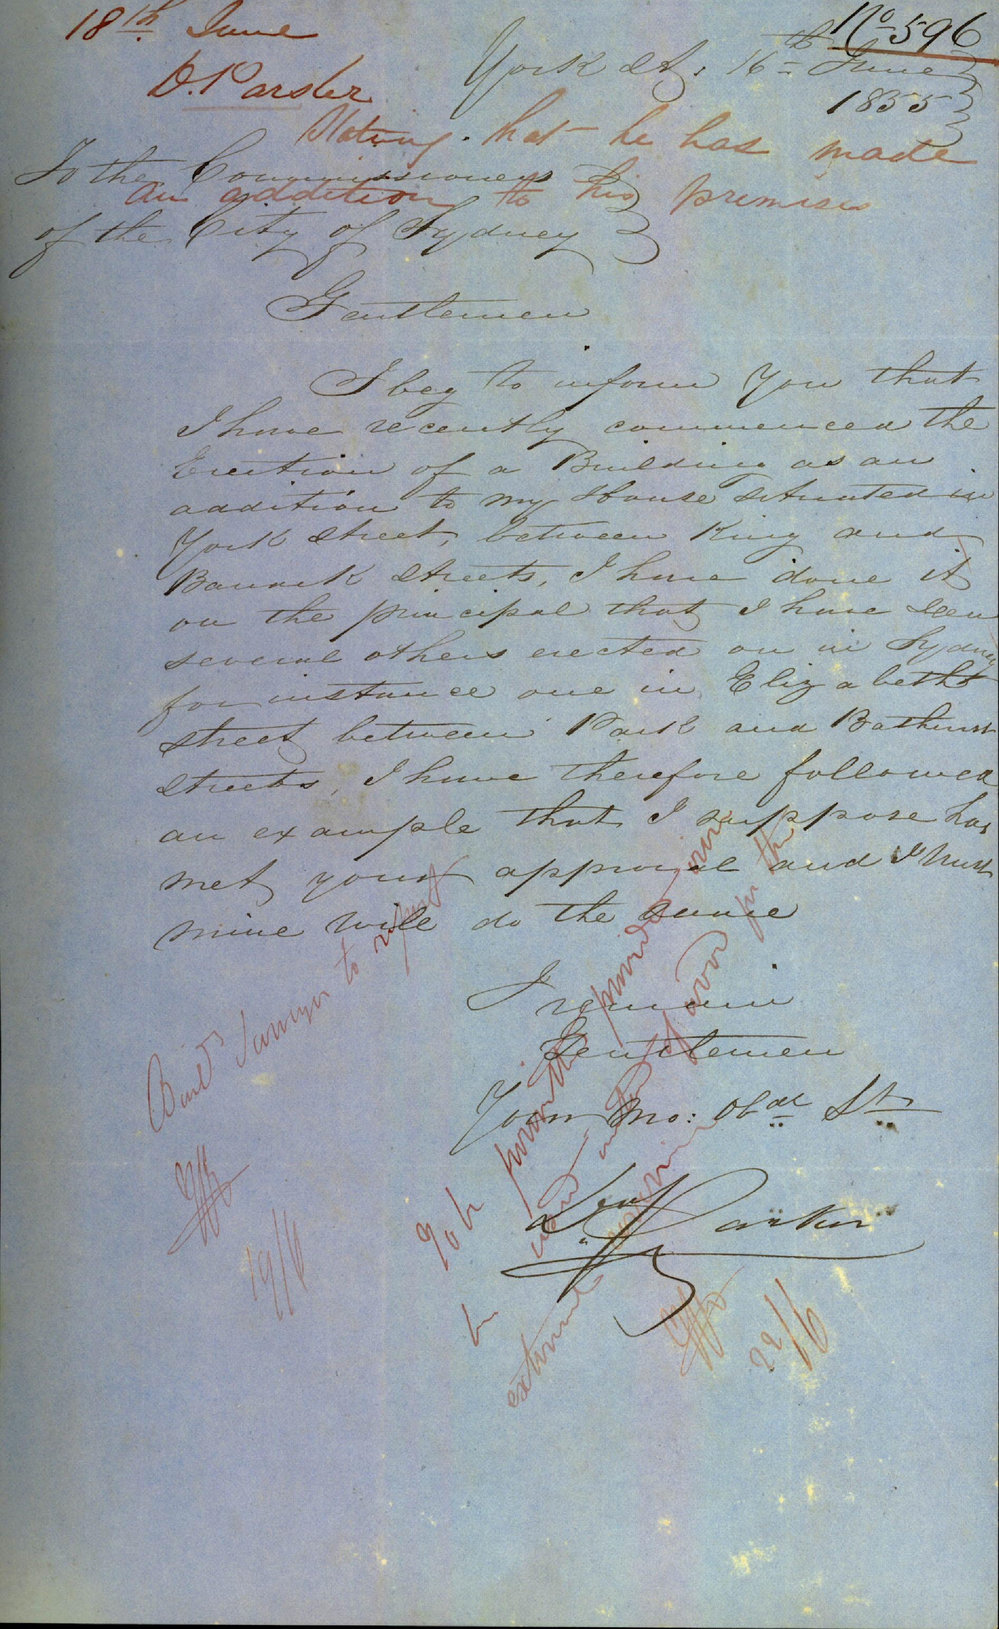 No 596
18th June
D. Parsler
Stating that he has made
an addition to his premises
York St, 16th June
1855
To the Commissioners
of the City of Sydney
Gentlemen
I beg to inform You that
I have recently commenced the
Erection of a Building as an
addition to my House Situated in
York Street, between King and
Barrack Streets, I have done it
on the principal that I have seen
several others erected on in Sydney
for instance one in Elizabeth
Street between Park and Bathurst
Streets, I have therefore followed
an example that I suppose has
met your approval and I trust
mine will do the same
I remain
Gentlemen
Your Mo: Obdt St
Parker
City Surveyor to report
19/6
To be permitted provided iron
be used instead of wood for the
external
22/6